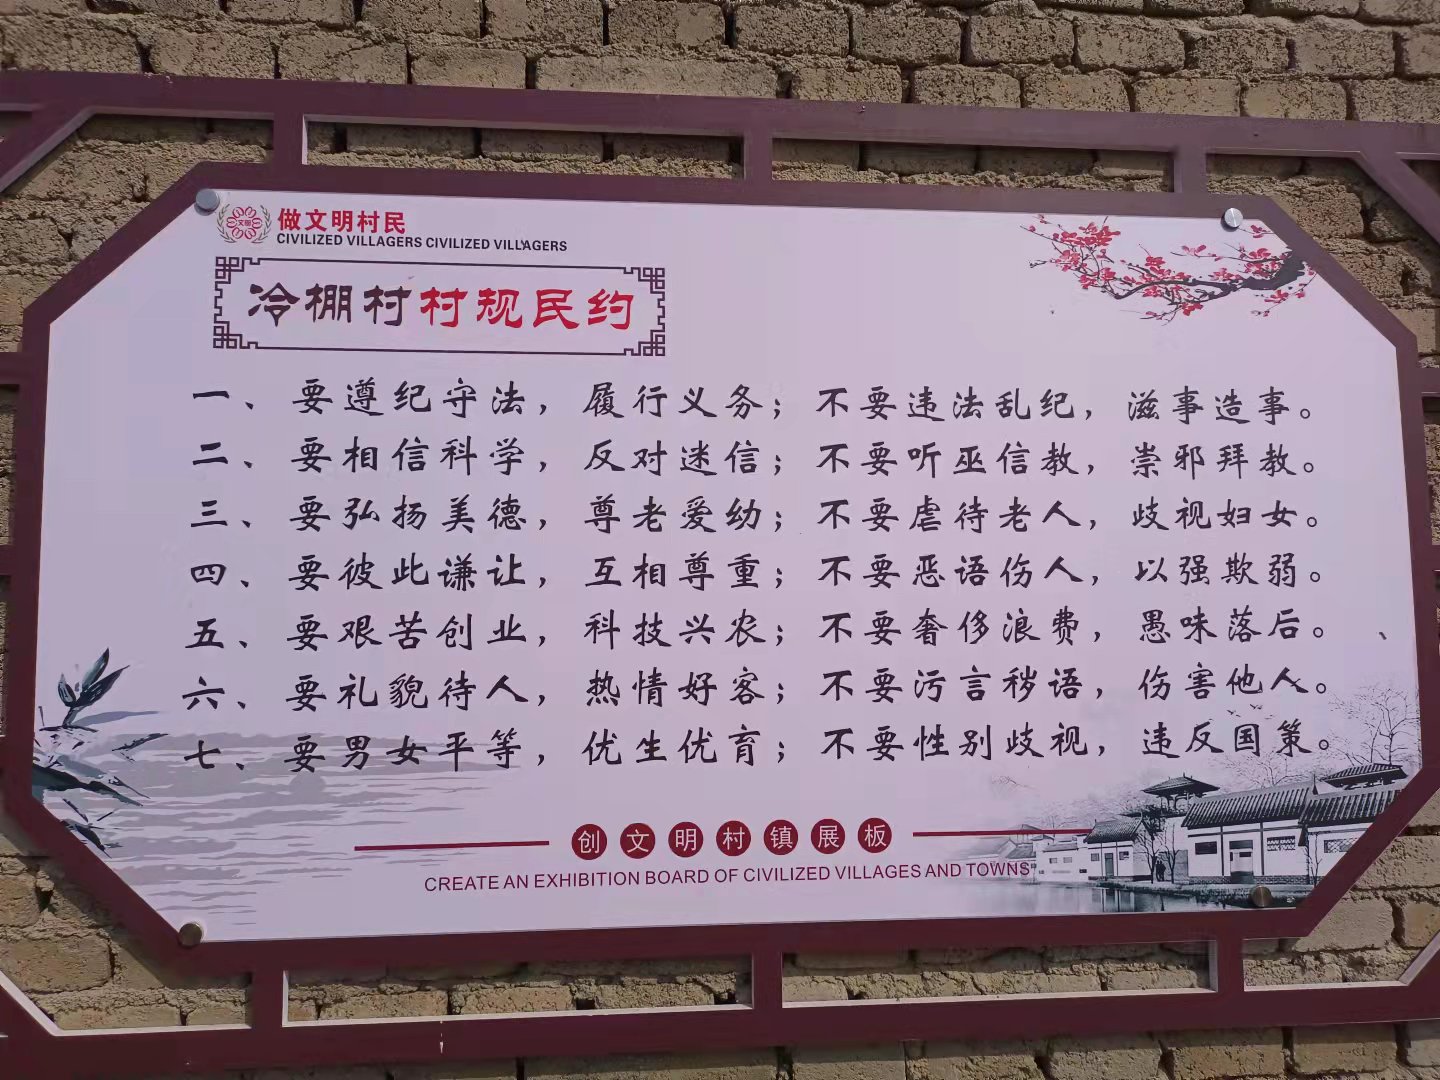 文明
做文明村民
CIVILIZED VILLAGERS CIVILIZED VILLAGERS
冷棚村村规民约
一、要遵纪守法，履行义务；不要违法乱纪，滋事造事。
二、要相信科学，反对迷信；不要听巫信教，崇邪拜教。
三、要弘扬美德，尊老爱幼；不要虐待老人，歧视妇女。
四、要彼此谦让，互相尊重；不要恶语伤人，以强欺弱。
五、要艰苦创业，科技兴农；不要奢侈浪费，愚昧落后。、
六、要礼貌待人，热情好客；不要污言秽语，伤害他人。
七、要男女平等，优生优育；不要性别歧视，违反国策。
创文明村镇展板
CREATE AN EXHIBITION BOARD OF CIVILIZED VILLAGES AND TOWNS